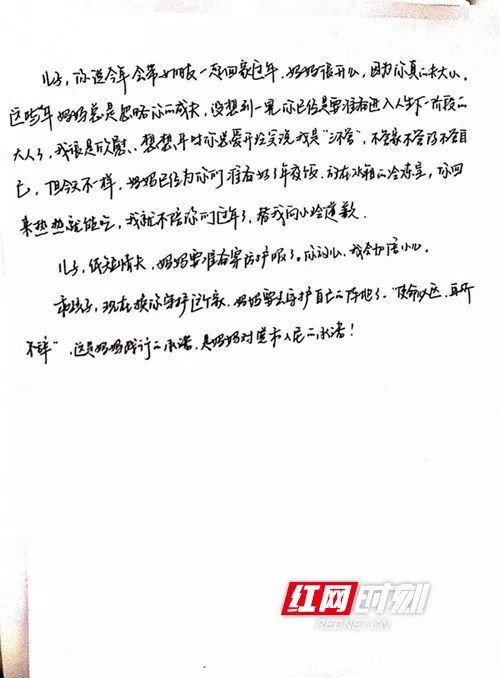 儿子，你说今年会带女朋友一起回家过年，妈妈很开心，因为你真的长大了。
这些年妈妈总是忽略你的成长，没想到一晃你已经是要准备进入人生下一阶段的
大人了，我很是欣慰。想想平时你总爱开玩笑说我是"三不管"，不管家不管你不管自
己，但今天不一样，妈妈已经为你们准备好了年夜饭，放在冰箱的冷冻室，你回
来热热就能吃，我就不陪你们过年了，替我向小冷道歉。
儿子，纸短情长，妈妈要准备穿防护服了。你放心，我会加倍小心。
乖孩子，现在换你守护这个家，妈妈要去守护自己的阵地了。"使命必达，万死
不辞"，这是妈妈践行的承诺，是妈妈对党和人民的承诺！
红网时刻
REDNET.CN